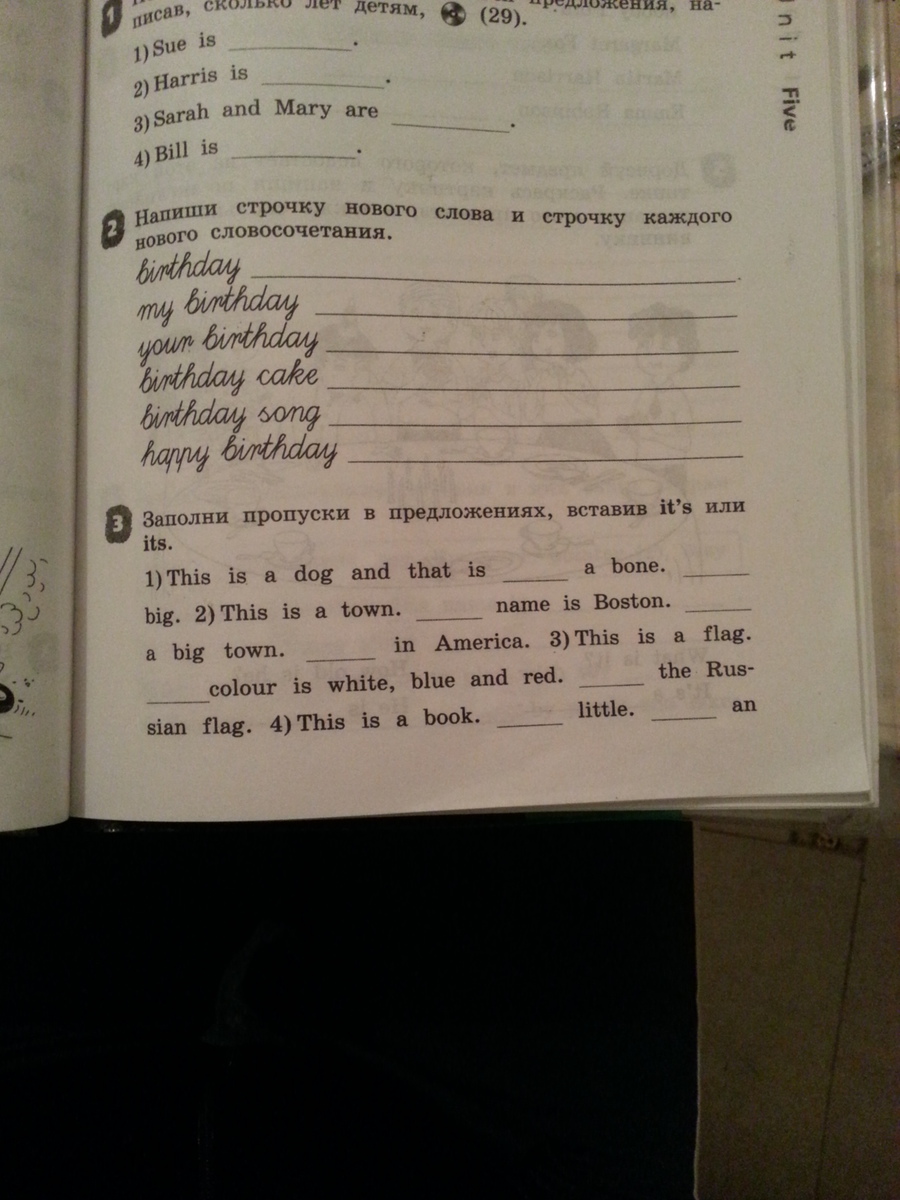 писав, сколько лет детям, (29).
предложения, на-
1) Sue is ____________.
2) Harris is ____________.
3) Sarah and Mary are ____________.
4) Bill is ____________.
2 Напиши строчку нового слова и строчку каждого
нового словосочетания.
birthday
my birthday
your birthday
birthday cake
birthday song
happy birthday
3 Заполни пропуски в предложениях, вставив it's или
its.
1) This is a dog and that is ______ a bone. ______
big. 2) This is a town. ______ name is Boston. ______
a big town. ______ in America. 3) This is a flag.
______colour is white, blue and red. ______ the Rus-
sian flag. 4) This is a book. ______ little. ______ an
nit Five